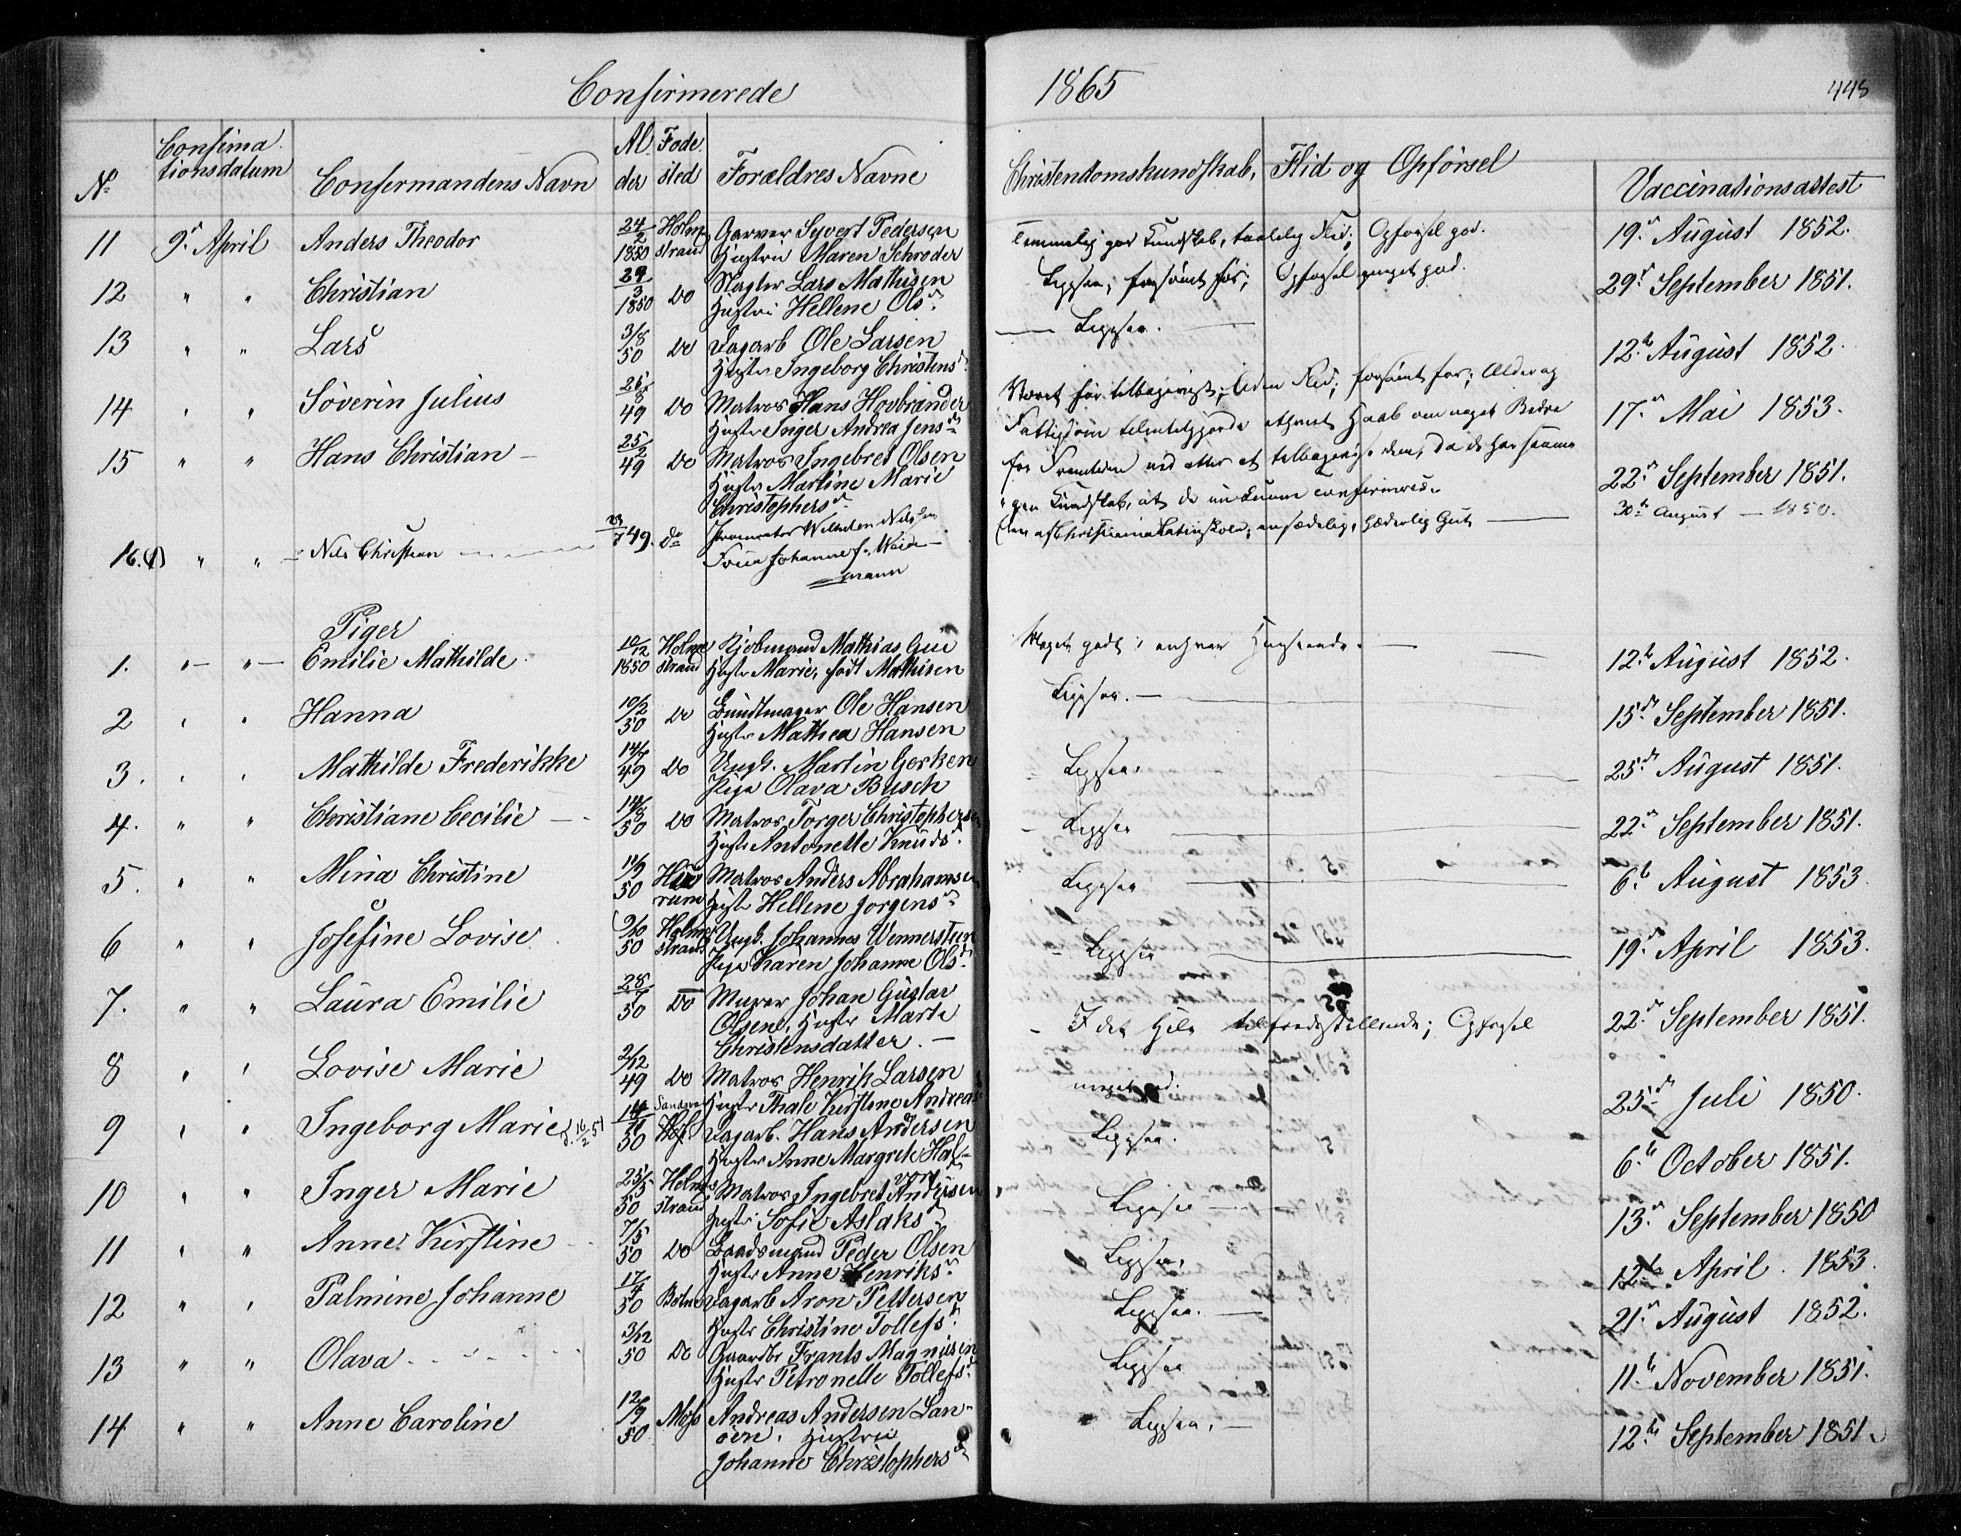 Confirmerede
1865
448
No
Confirma
tionsdatum
Confermandens Navn
Al
der
Fode
sted
Forældres Navne
Christendomskundskab, Flid og Opførsel
Vaccinationsattest
11 9de April Anders Theodor 24/2 1850 Holm strand Garver Syvert Pedersen
Hustru Maren Schrøder
Temmelig god Kundskab, taalelig Flid; Opførsel god.
19de August 1852.
12 " " Christian 29/3 1850 Do Slagter Lars Mathisen
Hustru Hellene Olsd.
Ligesaa; forsømt før; Opførsel meget god.
29de September 1851.
13 " " Lars 3/8 50 Do Dagarb Ole Larsen
Hustr Ingeborg Christensd.
Ligesaa.
12te August 1852.
14 " " Søverin Julius 49 Do Matros Hans Hovbrander
Hustr Inger Andrea Jensd.
Været før tilbagevist; Uden Flid; forsømt før; Alder og
17de Mai 1853.
15 " " Hans Christian 25/2 49 Do Matros Ingebret Olsen
Hustr Martine Marie
Christophersd.
Fattigdom tilintetgjorde ethvert Haab om noget Bedre
for Fremtiden ved atter at tilbagevise dem, da de har samme
Kundskab, at de kunne confirmeres.
22de September 1851.
16.(1) " " Nils Christian 7 49. Do Procurator Wilhelm Nilsen
Frue Johanne f. Weide
mann
30te August 1850.
Piger
1. Emilie Mathilde 10/12 1850 Holme strand Kjøbmand Mathias Gue
Hustr Marie, født Mathisen
Meget godt i enhver Henseende.
12te August 1852.
2 Hanna 10/2 50 Do Bundtmager Ole Hansen
Hustr Mathea Hansen
Ligesaa.
15de September 1851.
3. Mathilde Frederikke 49 Do Ungk. Martin Gerken
Pige Olava Busch
Ligesaa.
25de August 1851.
4. " " Christiane Cecilie 14/8 50 Do Matros Torger Christophersen
Hustr Antonette Knudsd.
Ligesaa
22de September 1851.
5. Mina Christine 11/9 50 Matros Anders Abrahamsen
Hustr Hellene Jørgensd.
Ligesaa
6te August 1853
6 " " Josefine Lovise 2/10 50 Holme strand Ungk. Johannes Wennersteen
Pige Karen Johanne Olsd.
Ligesaa
19de April 1853.
7. " " Laura Emilie 28 50 Do Murer Johan Gustav
Olsen, Hustr Marte
Christensdatter.
I det Hele tilfredsstillende; Opførsel
meget god.
22de September 1851.
8 Lovise Marie 2/12 49 Do Matros Henrik Larsen
Hustr Thale Kirstine Andreasd.
25de Juli 1850.
9 Ingeborg Marie d. 16/2 51 50 Dagarb. Hans Andersen
Hustr Anne Margrete Hal
vorsd.
Ligesaa.
6te October 1851.
10 " " Inger Marie 25/5 50 Holme strand Matros Ingebret Andersen
Hustr Sofie Aslaksd.
Ligesaa
13de September 1850
11 " " Anne Kirstine 7/5 50 Do Baadsmand Peder Olsen
Hustr Anne Henriksd.
Ligesaa,
12te April 1853.
12 " " Palmine Johanne 17/4 50 Botne Dagarb Aron Pettersen
Hustr Christine Tollefsd.
Ligesaa.
21de August 1852.
13 " " Olava 3/12 50 Do Gaardbr Frants Magnusen
Hustr Petronelle Tollefsd.
Ligesaa
11te November 1851.
14 " " Anne Caroline 12/9 50 Moss Andreas Andersen Lan-
øen. Hustru
Johanne Christophersd.
Ligesaa.
12te September 1851.